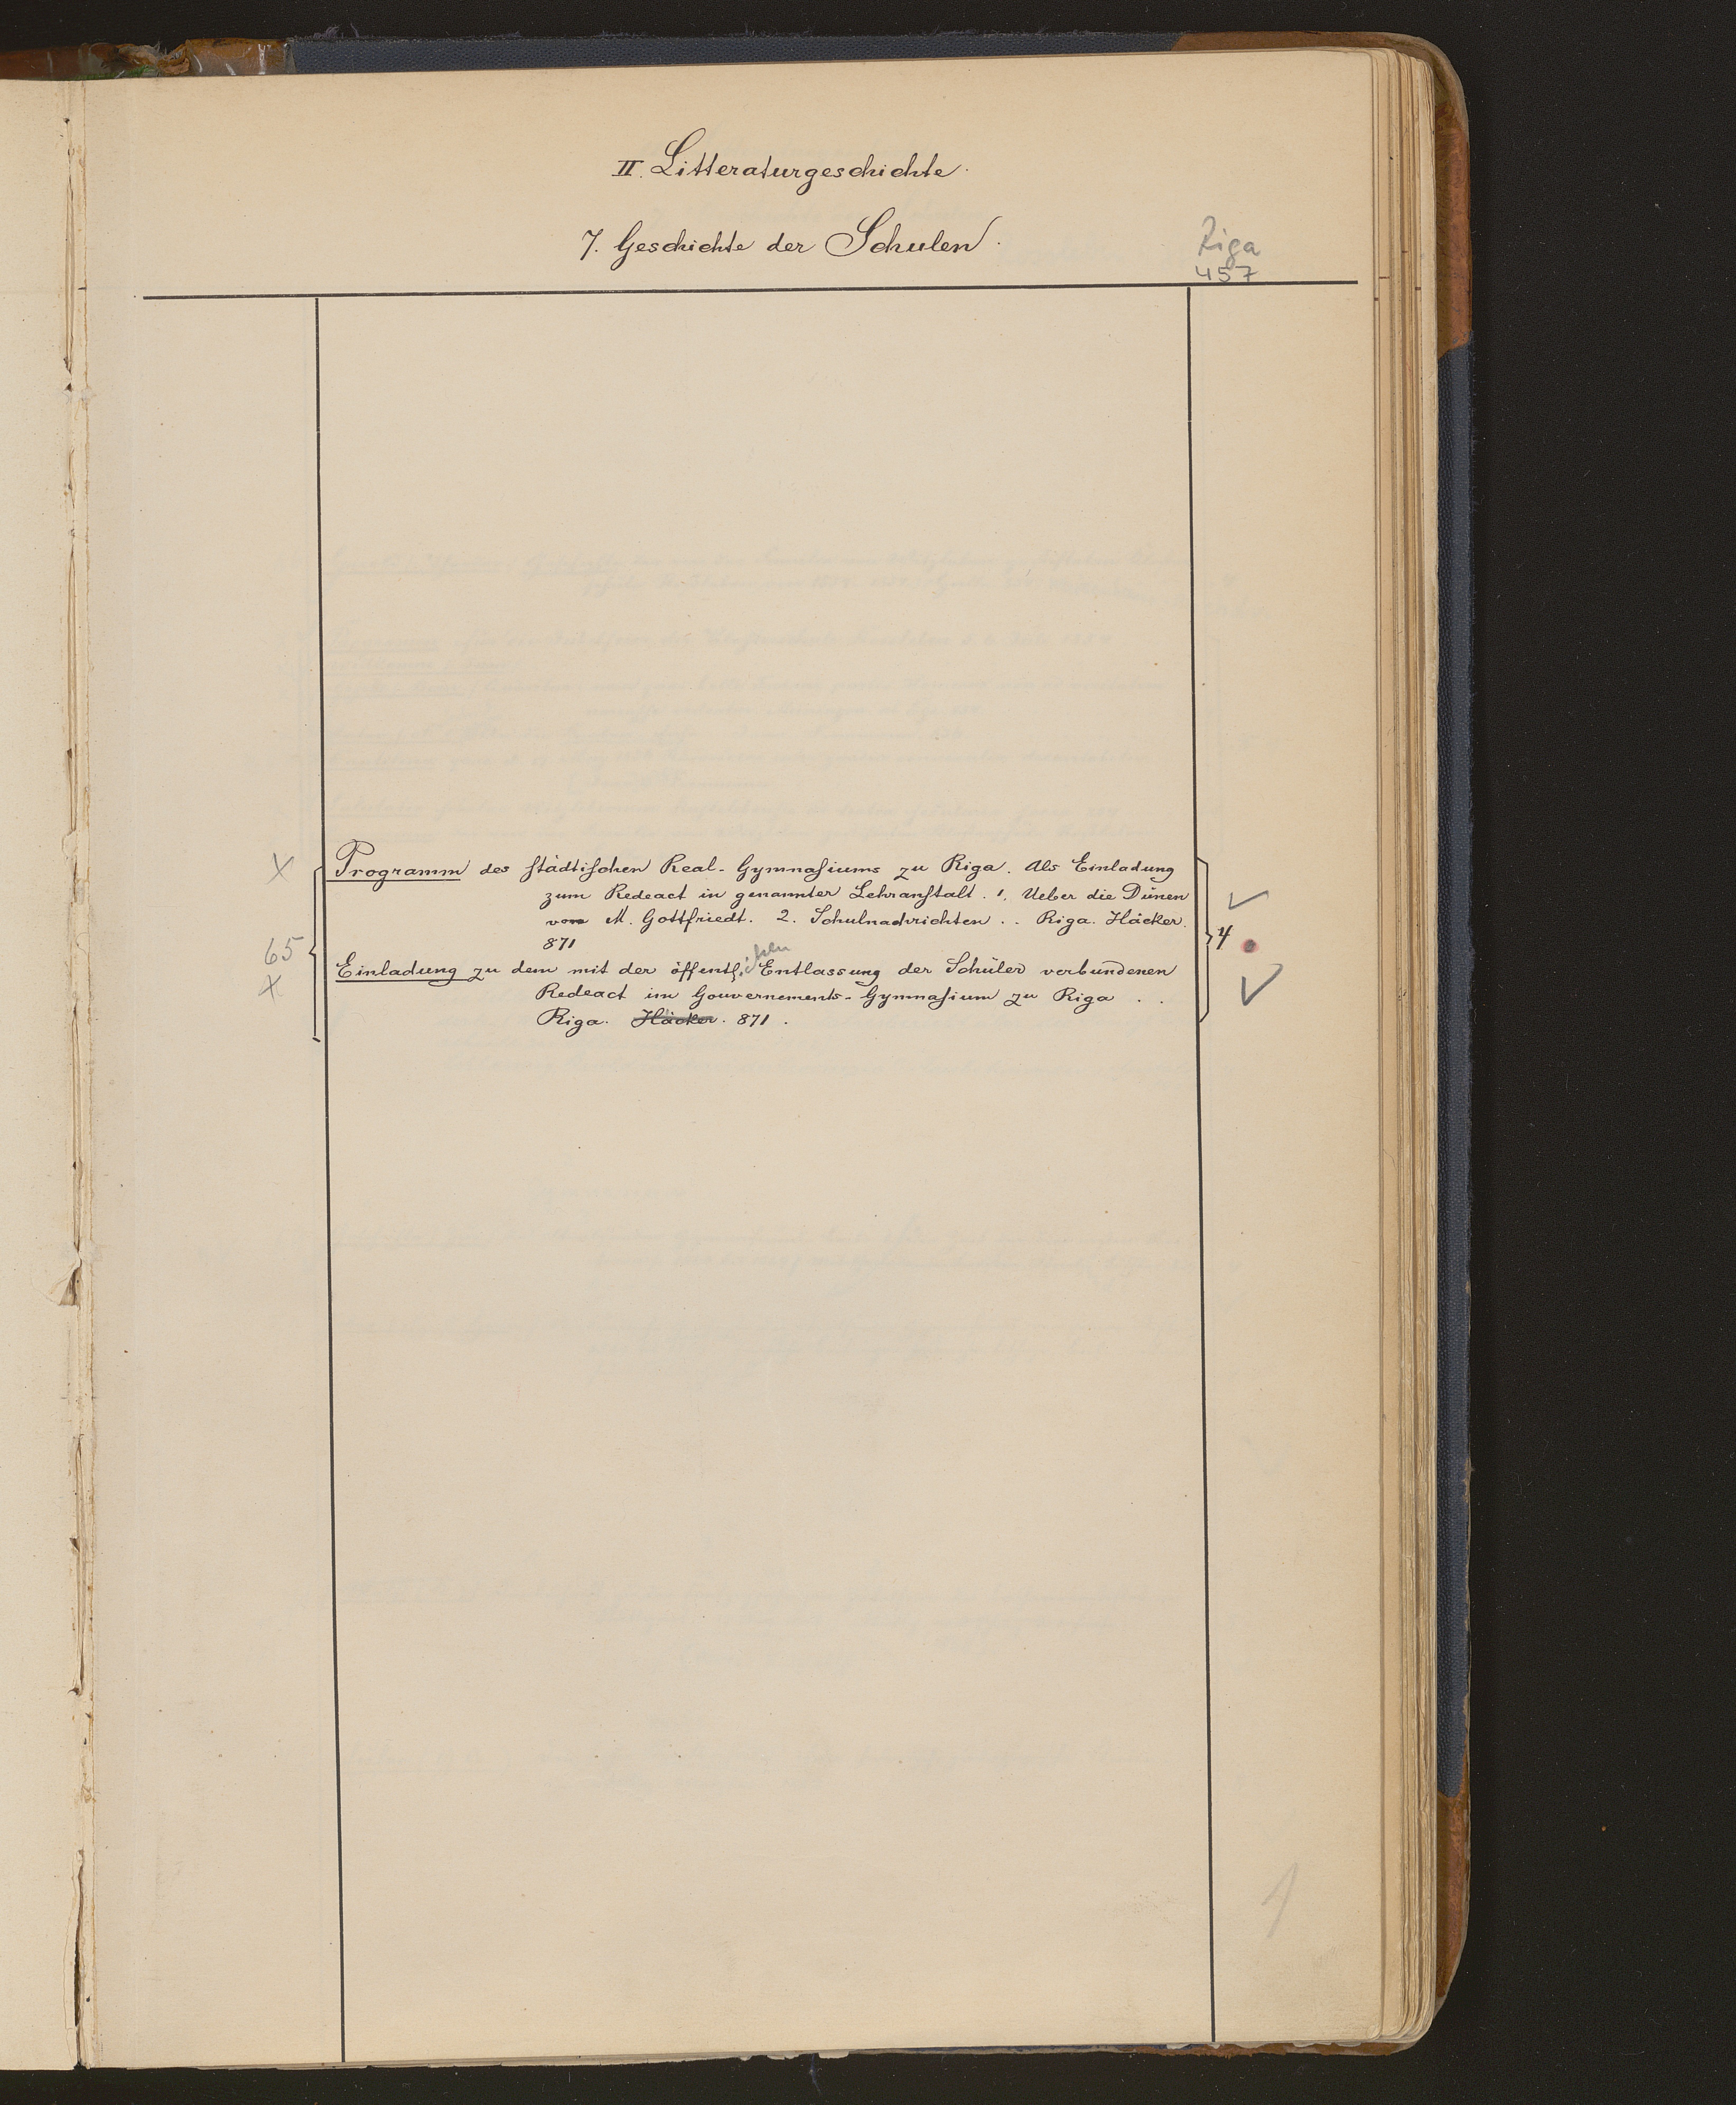 II. Litteraturgeschichte.
7. Geschichte der Schulen.
Riga
457
Programm des städtischen Real-Gymnasiums zu Riga. Als Einladung
zum Redeact in genannter Lehranstalt. 1. Ueber die Dünen
von M. Gottfriedt. 2. Schulnachrichten . . Riga. Häcker.
871
65
4
Einladung zu dem mit der öffentl. Entlassung der Schüler verbundenen
Redeact im Gouvernements-Gymnasium zu Riga . .
Riga. Häcker. 871.
1